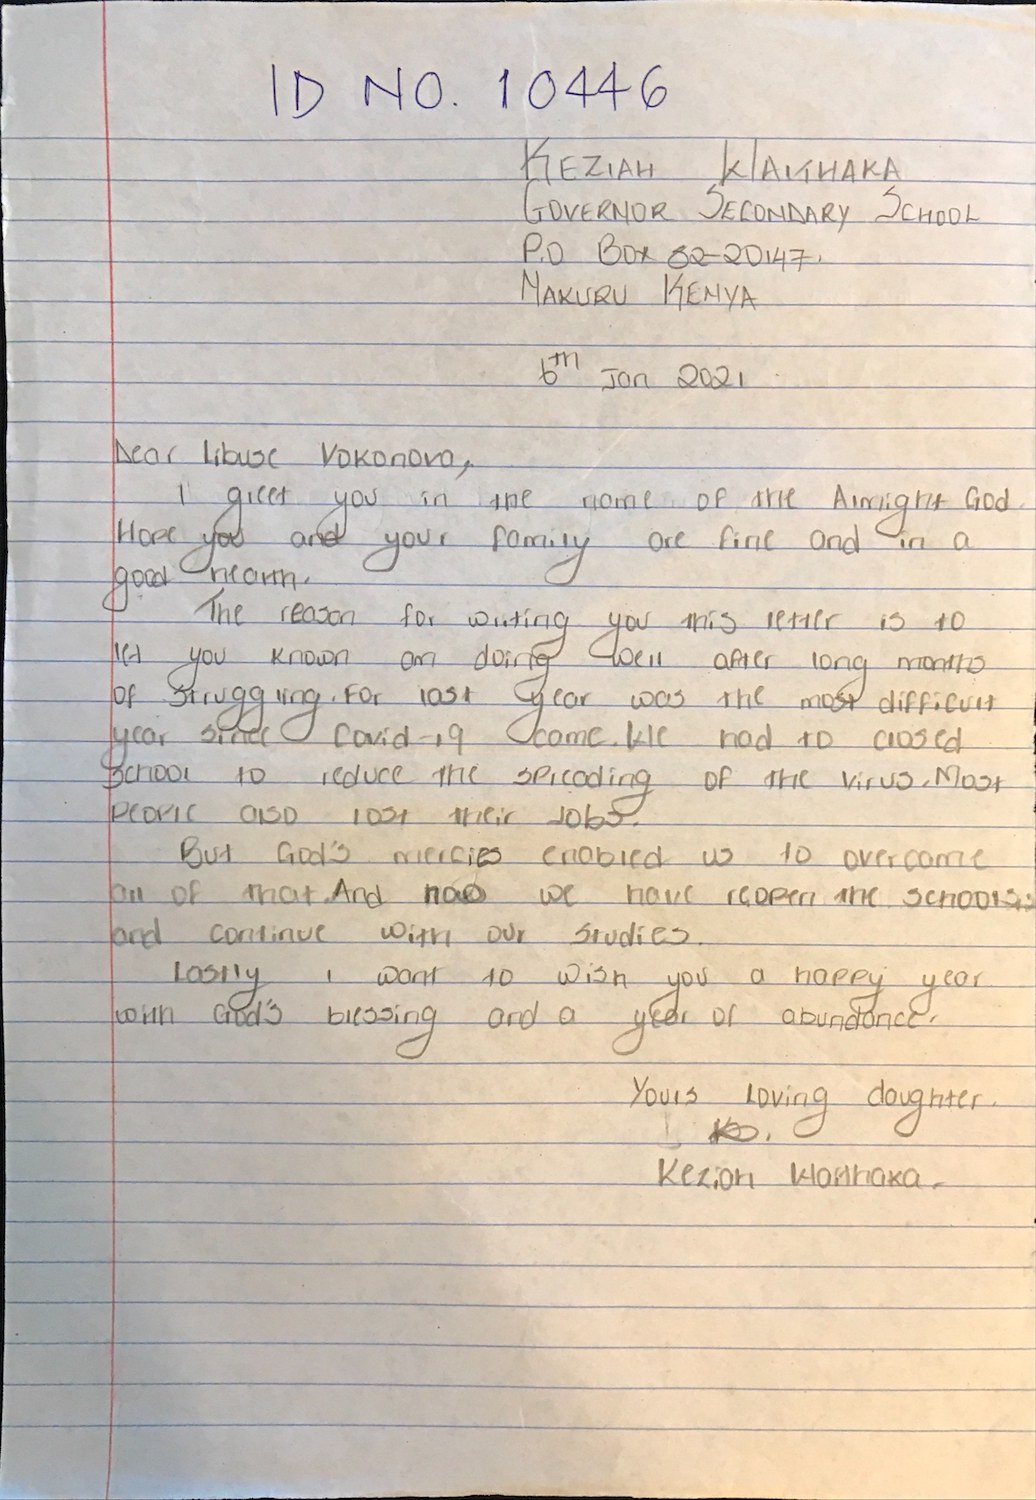 ID NO. 10446
KEZIAH WAITHAKA
GOVERNOR SECONDARY SCHOOL
P.O BOX 82-20147.
NAKURU KENYA
6th Jan 2021
Dear Libuse Vokonova,
I greet you in the name of the Almight God.
Hope you and your family are fine and in a
good health.
The reason for writing you this letter is to
let you known am doing well after long months
of struggling. For last year was the most difficult
year since Covid-19 came. We had to closed
school to reduce the spreading of the virus. Most
people also lost their jobs.
But God's mercies enabled us to overcame
all of that. And now we have reopen the schools
and continue with our studies.
Lastly i want to wish you a happy year
with God's blessing and a year of abundance.
Yours loving daughter.
Keziah Waithaka.